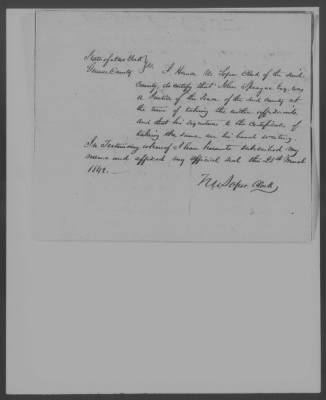 State of New York } ss.
Genesee County } I Horace M. Soper Clerk of the said
County, do certify that John Sprague Esq. was
a Justice of the Peace of the said county at
the time of taking the within affidavits
and that his signature to the certificate of
taking the same, is in his hand writing
In Testimony whereof I have hereunto subscribed my
name and affixed my official seal this 21st March
1842.
H M Soper Clerk